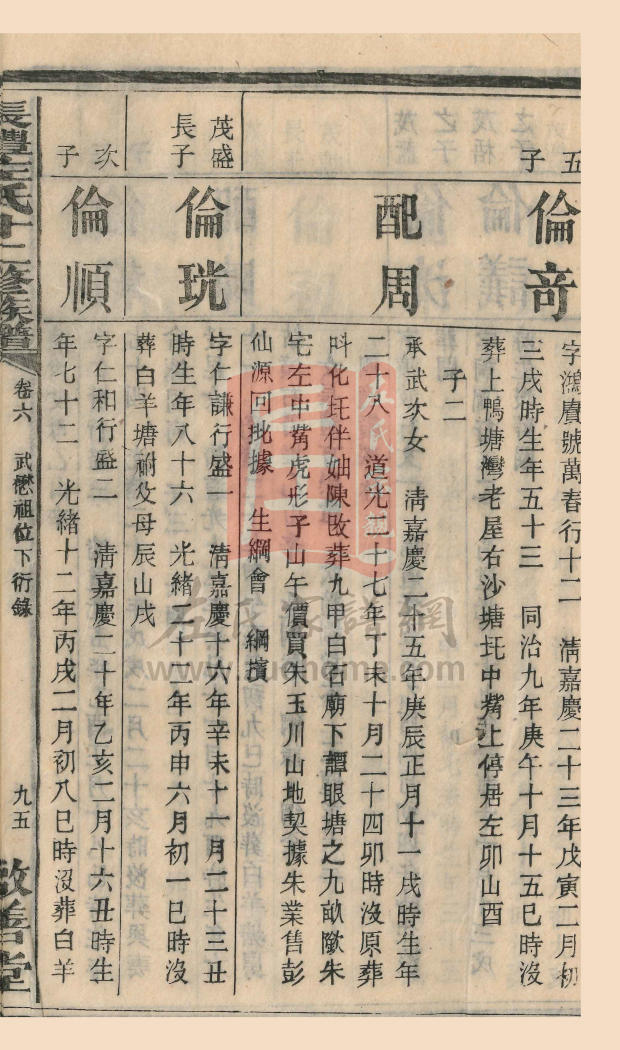 五子
倫奇
字鴻賡號萬春行十二 清嘉慶二十三年戊寅二月初
三戌時生年五十三 同治九年庚午十月十五巳時沒
葬上鴨塘灣老屋右沙塘坵中嘴上停居左卯山酉
子二
配周
承武次女 清嘉慶二十五年庚辰正月十一戌時生年
二十八 道光二十七年丁未十月二十四卯時沒原葬
呌化坵伴妯陳改葬九甲白石廟下譚眼塘之九畝歘朱
宅左中嘴虎形子山午價買朱玉川山地契據朱業售彭
仙源回批據 生綱會 綱擯
茂盛長子
倫珖
字仁謙行盛一 清嘉慶十六年辛未十一月二十三丑
時生年八十六 光緒二十二年丙申六月初一巳時沒
葬白羊塘祔父母辰山戌
次子
倫順
字仁和行盛二 清嘉慶二十年乙亥二月十六丑時生
年七十二 光緒十二年丙戌二月初八巳時沒葬白羊
長灃左氏十二修族譜
卷六 武懋祖位下衍錄
九五
敦善堂
左氏家譜網
www.zuohome.com